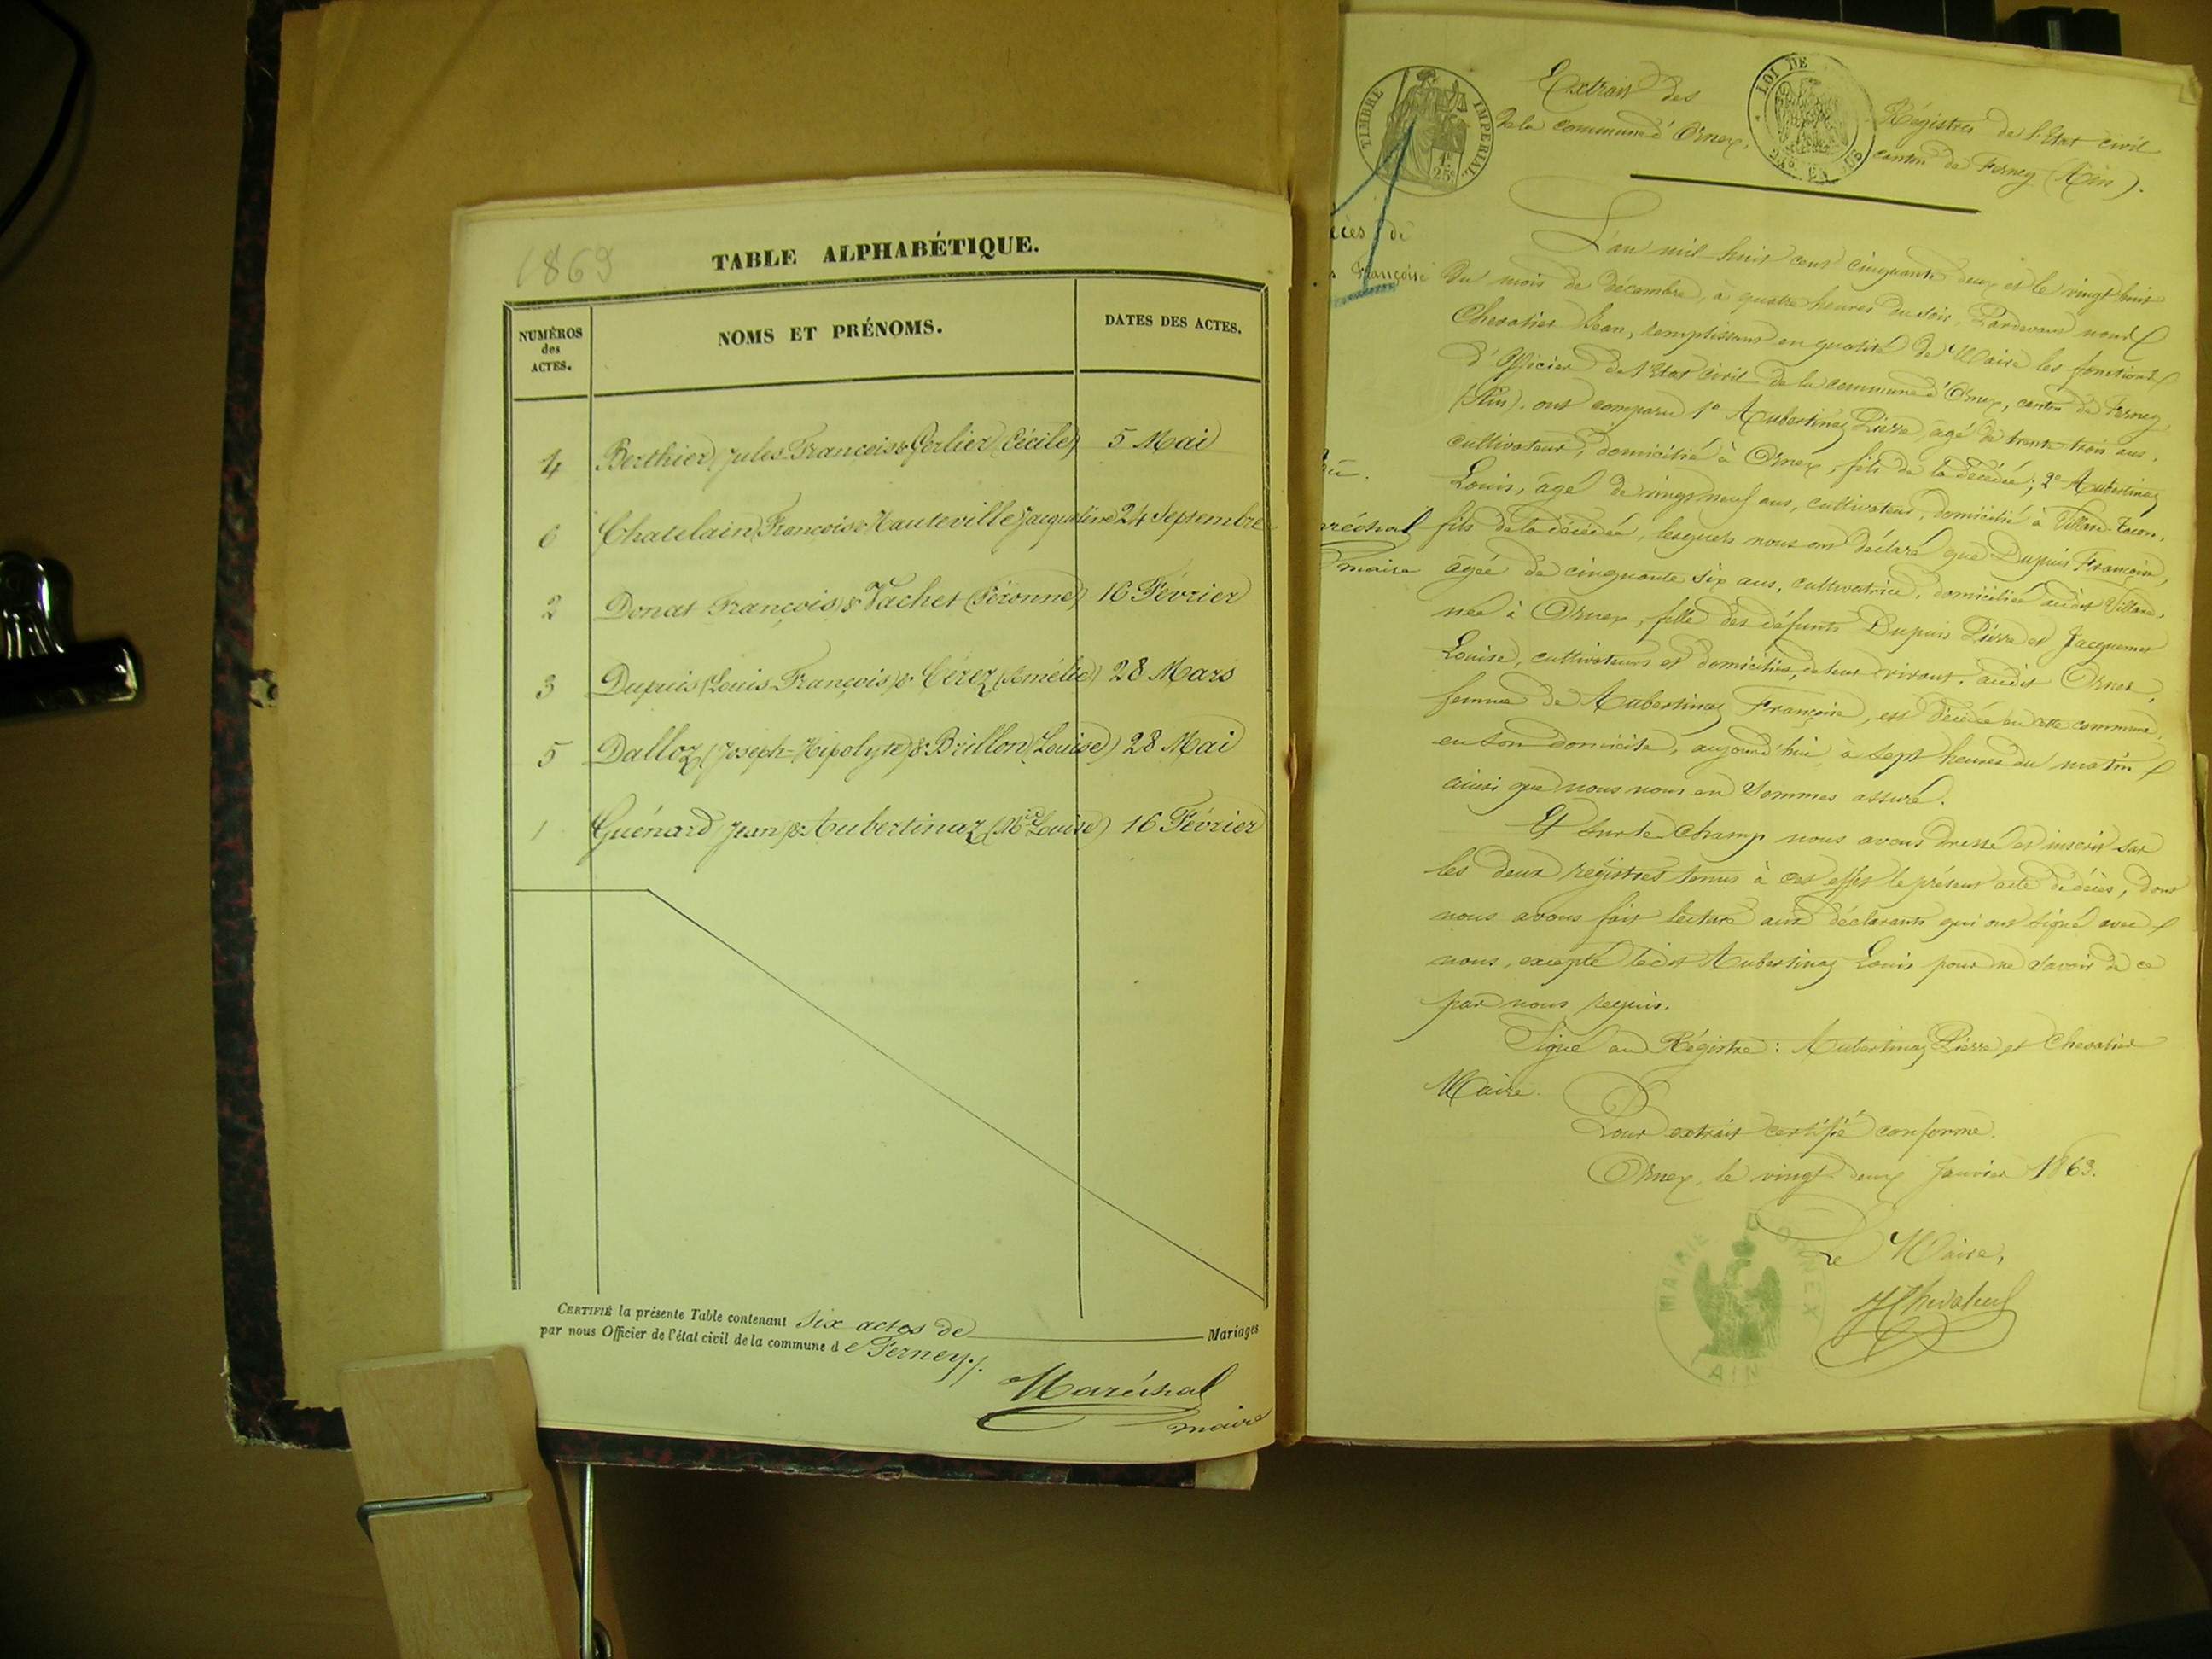 1869
TABLE ALPHABÉTIQUE.
NUMÉROS des ACTES. NOMS ET PRÉNOMS. DATES DES ACTES.
4 Berthier (Jules François) & Gerlier (Cécile) 5 Mai
6 Chatelain (François) & Hauteville (Jacqueline) 24 Septembre
2 Donat (François) & Vachet (Péronne) 16 Février
3 Dupuis (Louis-François) & Cérez (Amélie) 28 Mars
5 Dalloz (Joseph-Hipolyte) & Brillon (Louise) 28 Mai
1 Guénard (Jean) & Aubertinaz (Mie Louise) 16 Février
CERTIFIÉ la présente Table contenant Six actes de Mariages
par nous Officier de l'état civil de la commune de Ferney./.
Maréchal
maire
TIMBRE IMPERIAL
1F 25c
LOI DE
Extrait des Régistres de l'Etat civil
de la commune d'Ornex, canton de Ferney (Ain).
L'an mil huit cent cinquante deux et le vingt huit
du mois de décembre, à quatre heures du soir, Pardevant nous
Chevalier Jean, remplissant en qualité de Maire les fonctions
d'Officier de l'Etat civil de la commune d'Ornex, canton de Ferney
(Ain). ont comparu 1° Aubertinaz Pierre, agé de trente trois ans,
cultivateur, domicilié à Ornex, fils de la décédée; 2° Aubertinaz
Louis, âgé de vingt neuf ans, cultivateur, domicilié à Villard-Tacon,
fils de la décédée, lesquels nous ont déclaré que Dupuis Françoise,
âgée de cinquante six ans, cultivatrice, domiciliée audit Villard,
née à Ornex, fille des défunts Dupuis Pierre et Jacquemet
Louise, cultivateurs et domiciliés, de leur vivant, audit Ornex,
femme de Aubertinaz François, est décédée en cette commune,
en son domicile, aujourd'hui à sept heures du matin
ainsi que nous nous en sommes assuré.
Et sur le champ nous avons dressé et inscrit sur
les deux régistres tenus à cet effet le présent acte de décès, dont
nous avons fait lecture aux déclarants qui ont signé avec
nous, excepté ledit Aubertinaz Louis pour ne savoir de ce
par nous requis.
Signé au Régistre: Aubertinaz Pierre et Chevalier
Maire.
Pour extrait certifié conforme.
Ornex, le vingt deux Janvier 1863.
Le Maire,
Chevalier
MAIRIE D'ORNEX
AIN
de
Françoise
maréchal
maire